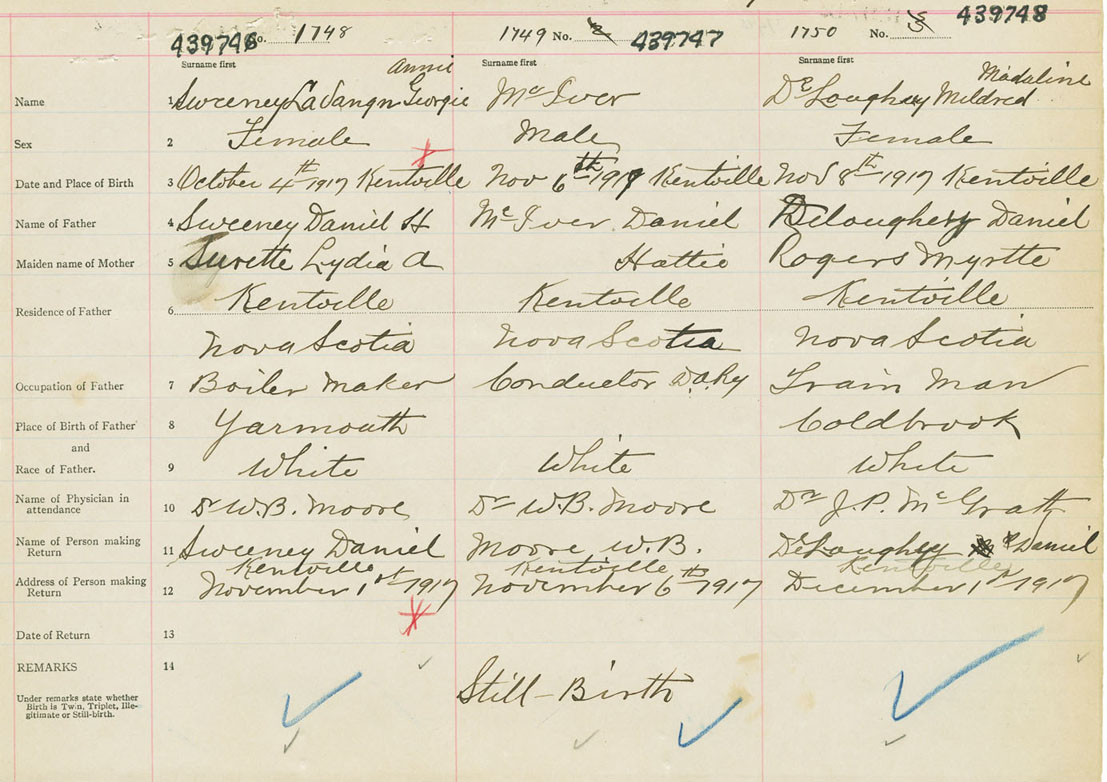 439746 No. 1748 1749 No. 2 439747 1750 No. 3 439748
Surname first Surname first Surname first
Annie Madaline
Name 1 Sweeney Georgie McIver DeLoughery Mildred
Sex 2 Female Male Female
Date and Place of Birth 3 October 4th 1917 Kentville Nov 6th 1917 Kentville Nov 8th 1917 Kentville
Name of Father 4 Sweeney Daniel H McIver Daniel Deloughery Daniel
Maiden name of Mother 5 Surette Lydia A Hattie Rogers Myrtte
Residence of Father 6 Kentville Kentville Kentville
Nova Scotia Nova Scotia Nova Scotia
Occupation of Father 7 Boiler Maker Conductor D.A.Ry Train Man
Place of Birth of Father 8 Yarmouth Coldbrook
and
Race of Father. 9 White White White
Name of Physician in
attendance 10 Dr W.B. Moore Dr W.B. Moore Dr J.P. McGrath
Name of Person making
Return 11 Sweeney Daniel Moore W.B. DeLoughery Daniel
Kentville Kentville Kentville
Address of Person making
Return 12 November 1st 1917 November 6th 1917 December 1st 1917
Date of Return 13
REMARKS 14
Still-Birth
Under remarks state whether
Birth is Twin, Triplet, Ille-
gitimate or Still-birth.